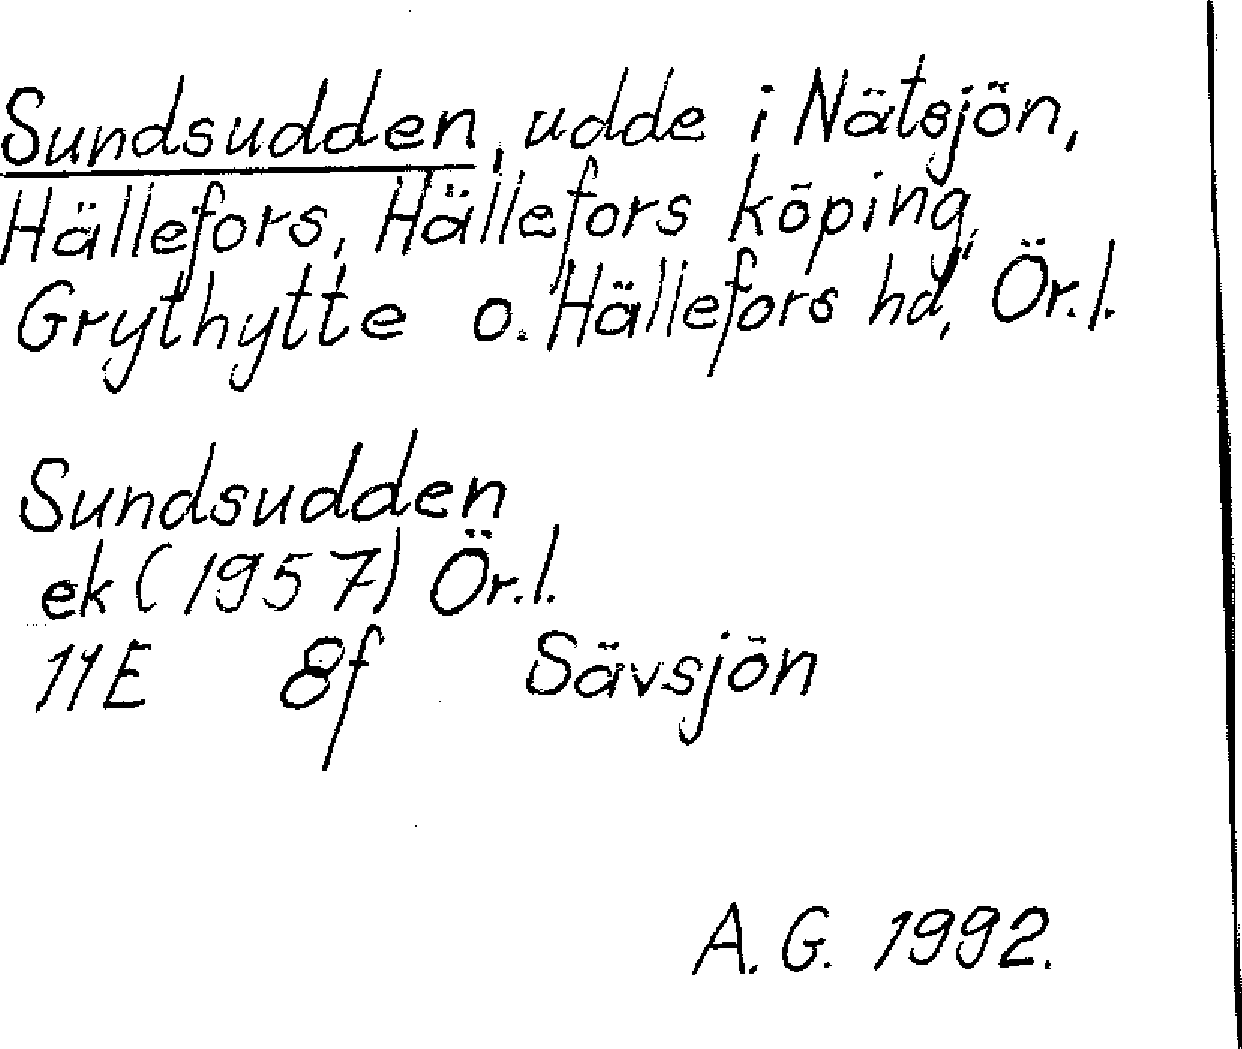 Sundsudden, udde i Nätsjön,
Hällefors, Hällefors köping,
Grythytte o. Hällefors hd, Ör.l.
Sundsudden
ek (1957) Ör.l.
11E 8f Sävsjön
A.G. 1992.